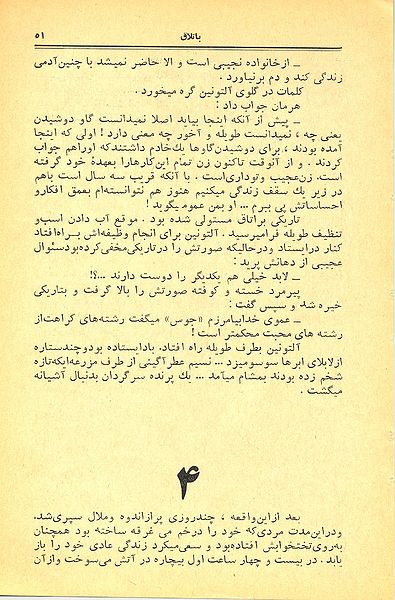 باتلاق
۵۱
ـ ازخانواده نجیبی است و الا حاضر نمیشد با چنین‌آدمی
زندگی کند و دم برنیاورد .
کلمات در گلوی آلتونین گره میخورد .
هرمان جواب داد :
ـ پیش از آنکه اینجا بیاید اصلا نمیدانست گاو دوشیدن
یعنی چه ، نمیدانست طویله و آخور چه معنی دارد ! اولی که اینجا
آمده بودند ، برای دوشیدن‌گاوها یك‌خادم داشتندکه اوراهم جواب
کردند . و از آنوقت تاکنون زن تمام این‌کارهارا بعهدهٔ خود گرفته
است. زن‌عجیب وتوداری‌است . با آنکه قریب سه سال است باهم
در زیر یك سقف زندگی میکنیم هنوز هم نتوانسته‌ام‌بعمق افکارو
احساساتش پی ببرم ... او بمن عمومیگوید !
تاریکی براتاق مستولی شده بود . موقع آب دادن اسب‌و
تنظیف طویله فرامیرسید . آلتونین برای انجام وظیفه‌اش بـراه‌افتاد
کنار درایستاد ودرحالیکه صورتش را درتاریکی‌مخفی‌کرده‌بودسئوال
عجیبی از دهانش پرید :
ـ لابد خیلی هم یکدیگر را دوست دارند ...؟!
پیرمرد خسته و کوفته صورتش را بالا گرفت و بتاریکی
خیره شد و سپس گفت :
ـ عموی خدابیامرزم «جوس» میگفت رشته‌های کراهت‌از
رشته های محبت محکمتر است !
آلتونین بطرف طویله راه افتاد. بادایستاده بودوچندستاره
ازلابلای ابرها سوسومیزد ... نسیم عطرآگینی از طرف مزرعه‌ایکه‌تازه
شخم زده بودند بمشام میآمد ... یك پرنده سرگردان بدنبال آشیانه
میگشت .
۴
بعد ازاین‌واقعه ، چندروزی پرازاندوه وملال سپری‌شد.
ودراین‌مدت مردی‌که خود را درخم می غرقه ساخته بود همچنان
به‌روی‌تختخوابش افتاده‌بود و سعی‌میکرد زندگی عادی خود را باز
یابد . در بیست و چهار ساعت اول بیچاره در آتش می‌سوخت وازآن